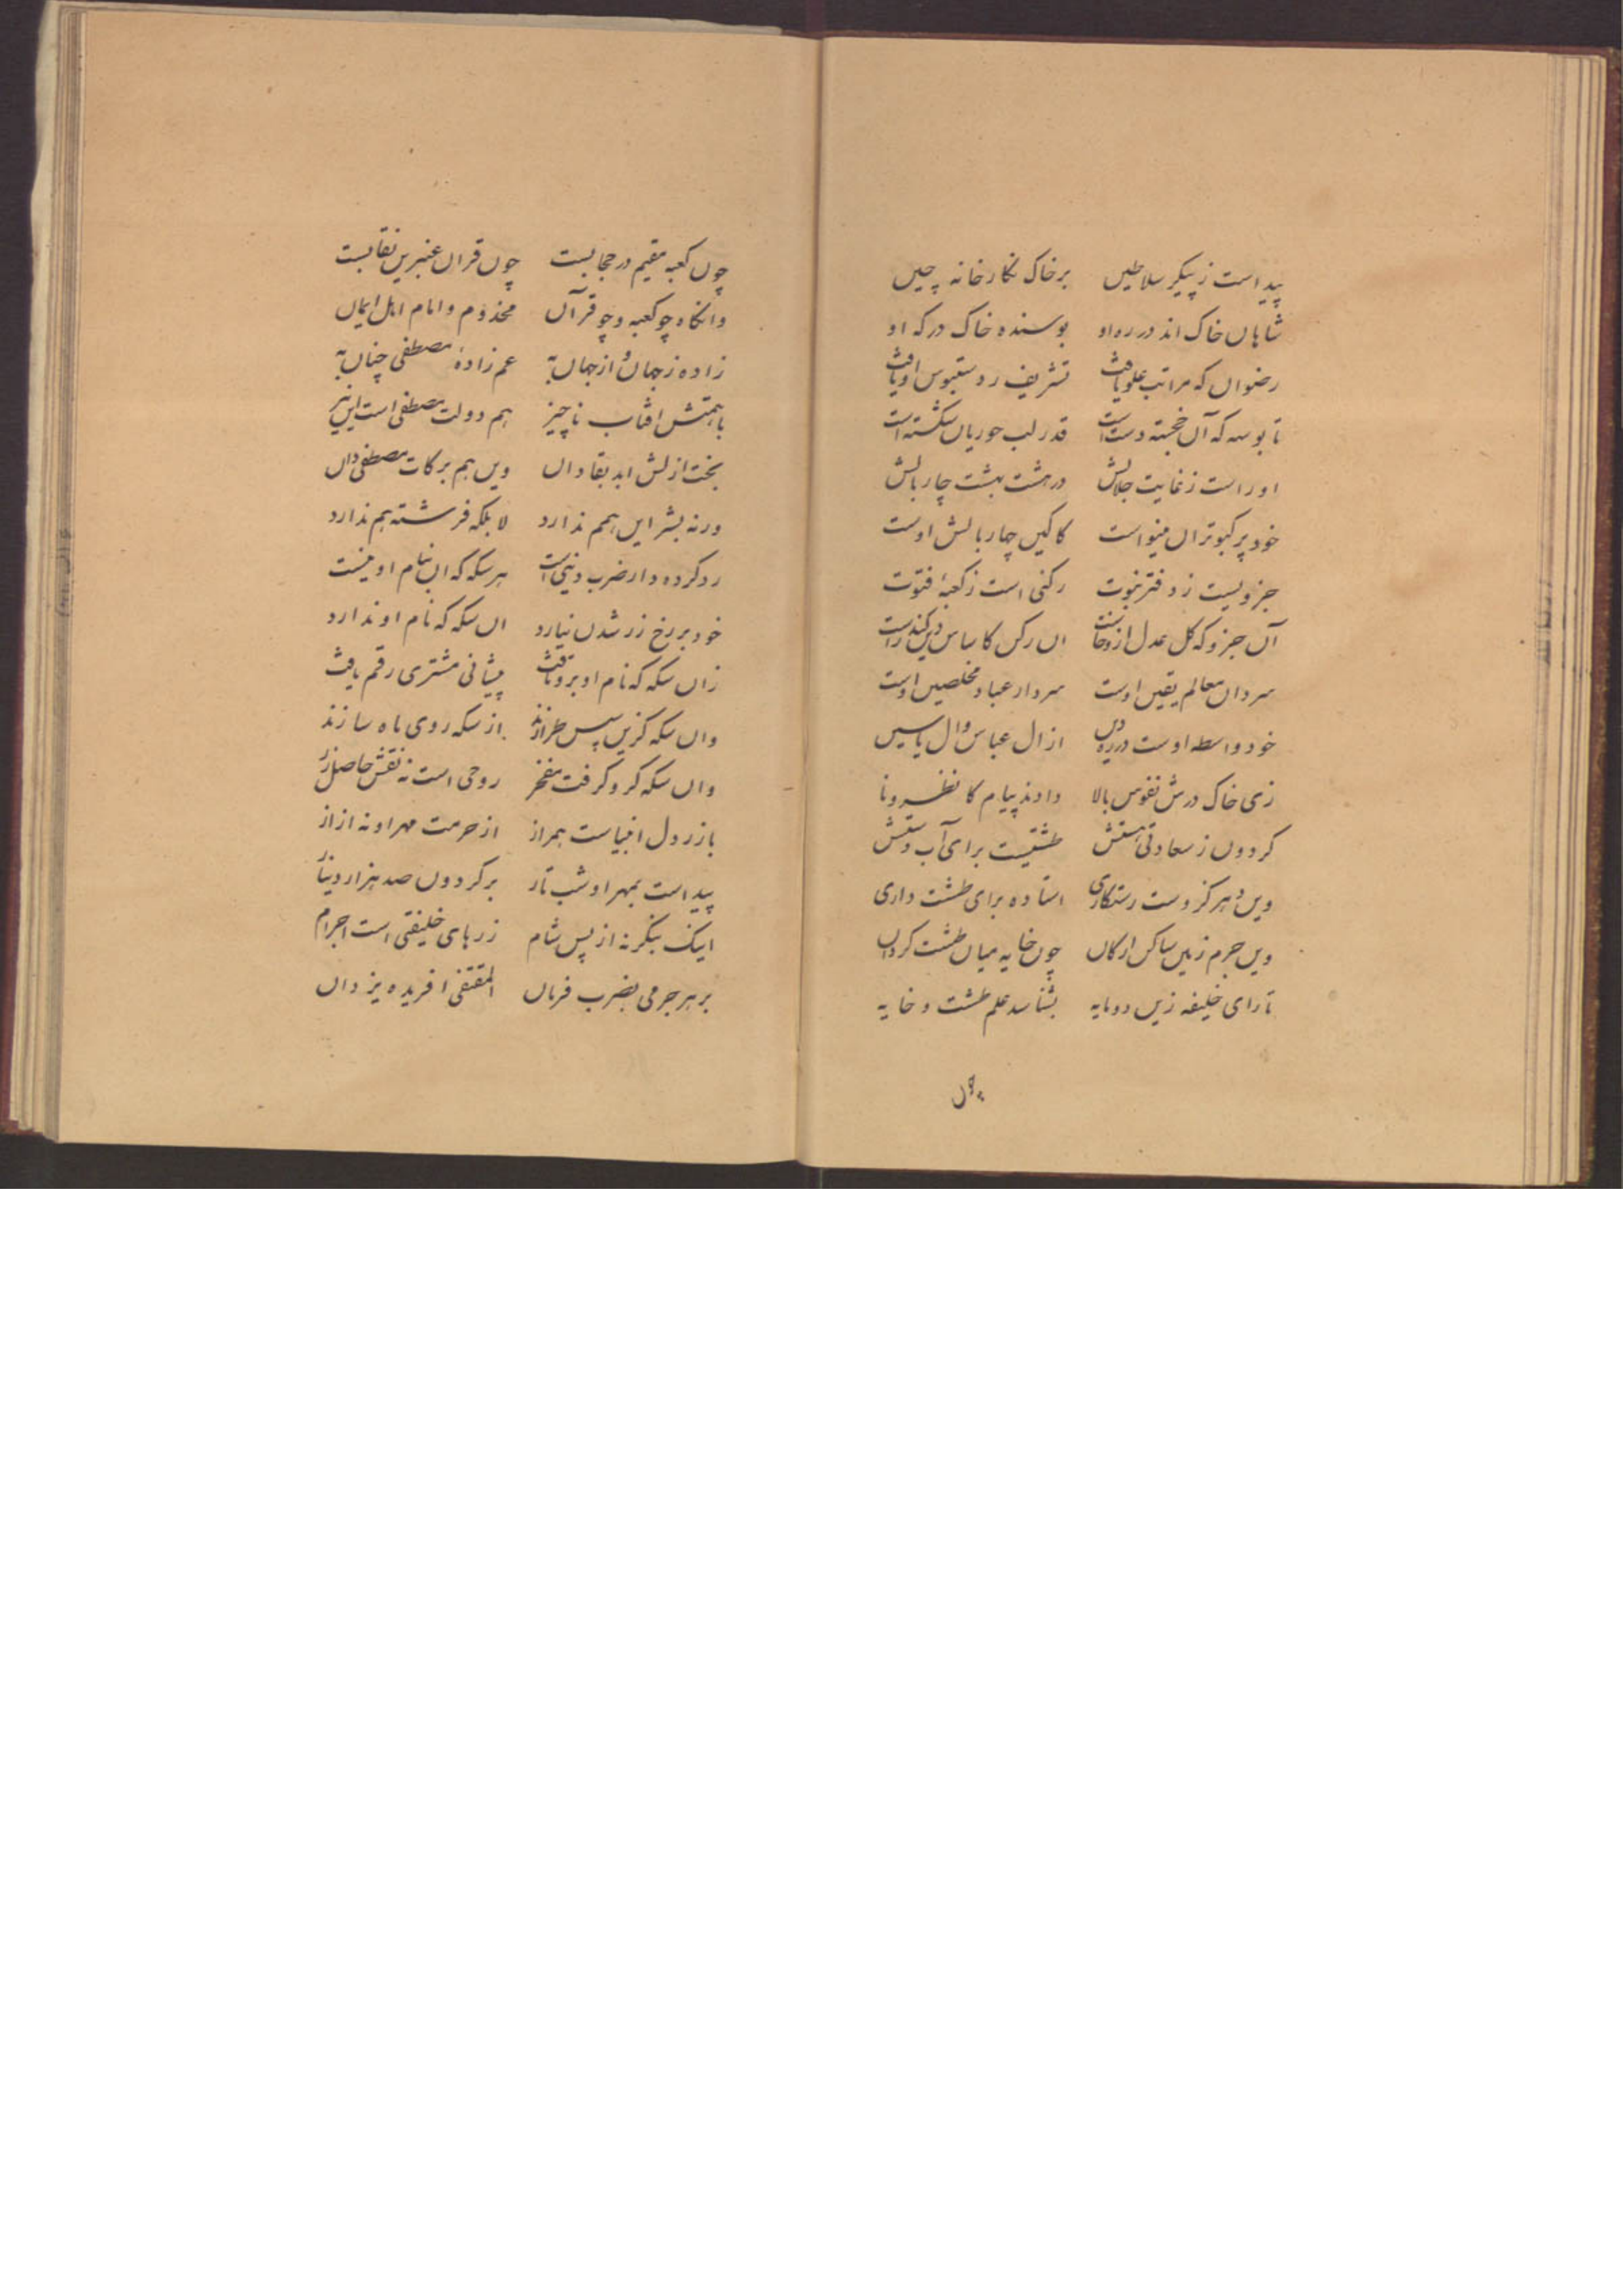 پیداست ز پیکر سلاطین بر خاک نگارخانه چین
شاهان خاک اند در ره او بوسنده خاک درکه او
رضوان که مراتب علو یافت تشریف ز دستبوس او یافت
تا بوسه که آن خجسته دست است قدر لب حوریان شکسته است
او راست ز غایت جلالش در هشت بهشت چار بالش
خود پر کبوتران مینواست کاکین چار بالش اوست
جزویست ز دفتر نبوت رکنی است ز کعبهٔ فتوت
آن جزو که کل عدل ازو خاست ان رکن کاساس دین کند راست
سردان معالم یقین اوست سردار عباد مخلصین اوست
خود واسطه اوست در ره دین از ال عباس و ال یاسین
زی خاک درش نفوس بالا دادند پیام کانظرونا
کردون ز سعادتی بهستش طشتیست برای آب دستش
وین دهر کزوست رستکاری استاده برای طشت داری
وین جرم زمین ساکن ارکان چون خایه میان طشت کردان
تا رای خلیفه زین دو مایه بشناسد علم طشت و خایه
چون
چون کعبه مقیم در حجابست چون قران عنبرین نقابست
وانکاه چو کعبه و چو قرآن مخدوم و امام اهل ایمان
زاده ز جهان و از جهان به عم زادهٔ مصطفی چنان به
با همتش افتاب ناچیز هم دولت مصطفی است این نیز
بخت ازلش ابد بقا دان وین هم برکات مصطفی دان
ورنه بشر این همم ندارد لا بلکه فرشته هم ندارد
رد کرده دار ضرب دنیی است هر سکه که ان بنام او نیست
خود بر رخ زر شدن نیارد ان سکه که نام او ندارد
زان سکه که نام او برو تافت پیشانی مشتری رقم یافت
وان سکه کزین سپس طرازند از سکه روی ماه سازند
وان سکه کزو کرفت مفخر روحی است نه نقش حاصل زر
با زر دل انبیاست همراز از حرمت مهر او نه از از
پیداست بمهر او شب تار بر کردون صد هزار دینار
اینک بنکر نه از پس شام زرهای خلیفتی است اجرام
بر هر جرمی بضرب فرمان المقتفی افریده یزدان